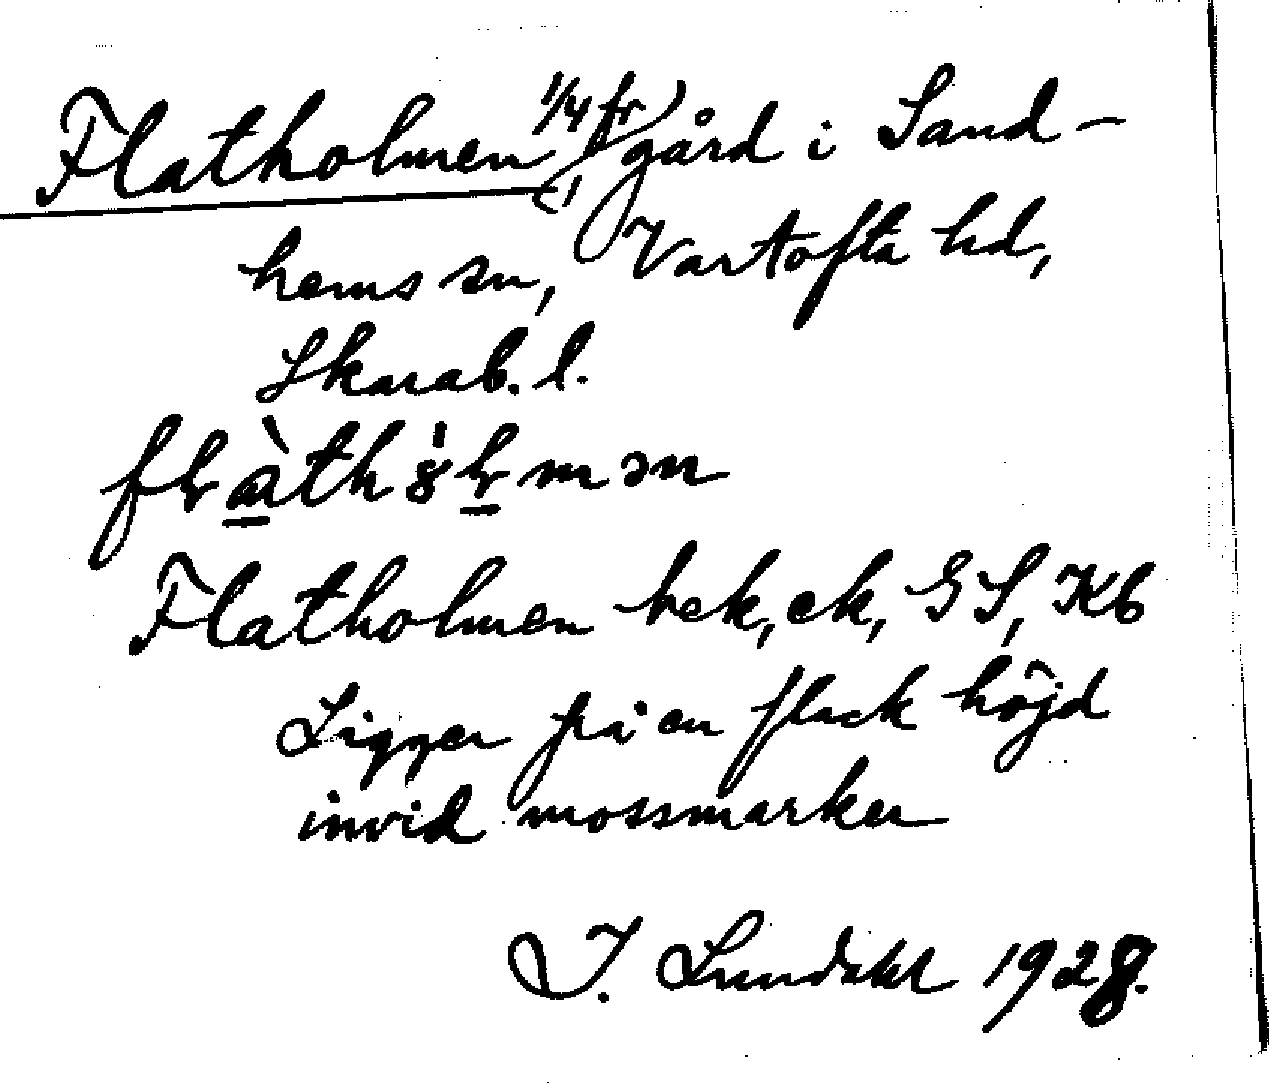 Flatholmen (1/4 fr) gård i Sand-
hems sn, Vartofta hd,
Skarab. l.
Flatholmen bek, ek, GS, Kb
Ligger på en flack höjd
invid mossmarker
I. Lundahl 1928.